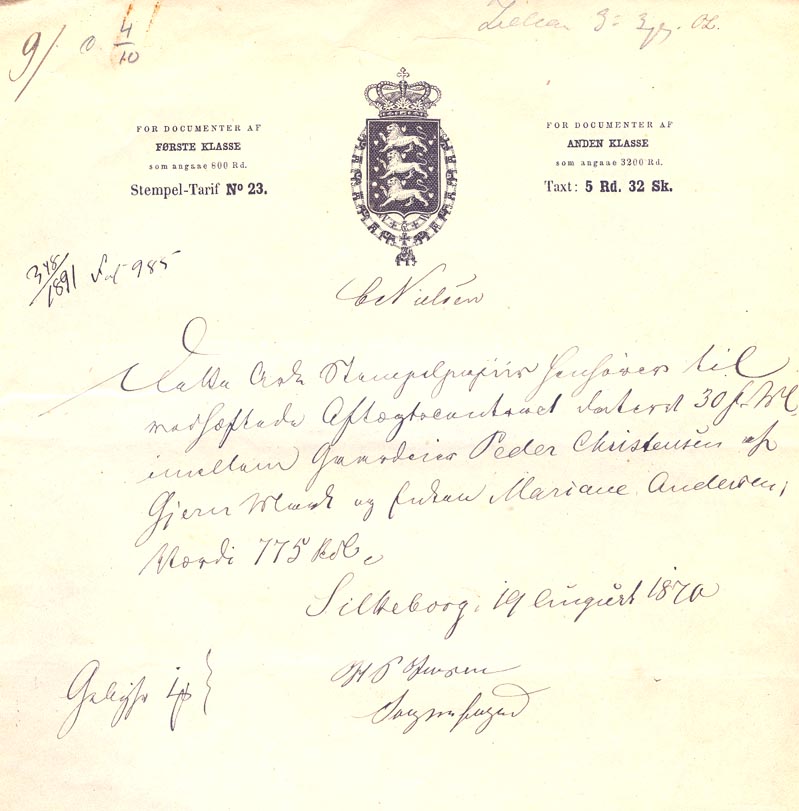 9/ 4/10
FOR DOCUMENTER AF
FØRSTE KLASSE
som angaae 800 Rd.
Stempel-Tarif No 23.
FOR DOCUMENTER AF
ANDEN KLASSE
som angaae 3200 Rd.
Taxt: 5 Rd. 32 Sk.
348/1891 Fol 985
C Nielsen
Dette Ark Stempelpapiir henhører til
vedhæftede Aftægtscontract dateret 30 f. M.
imellem Gaardeier Peder Christensen af
Gjern Mark og Enken Mariane Andersen,
Værdi 775 Rdl.
Silkeborg, 19 August 1870
H P Jensen
Gebyhr 4